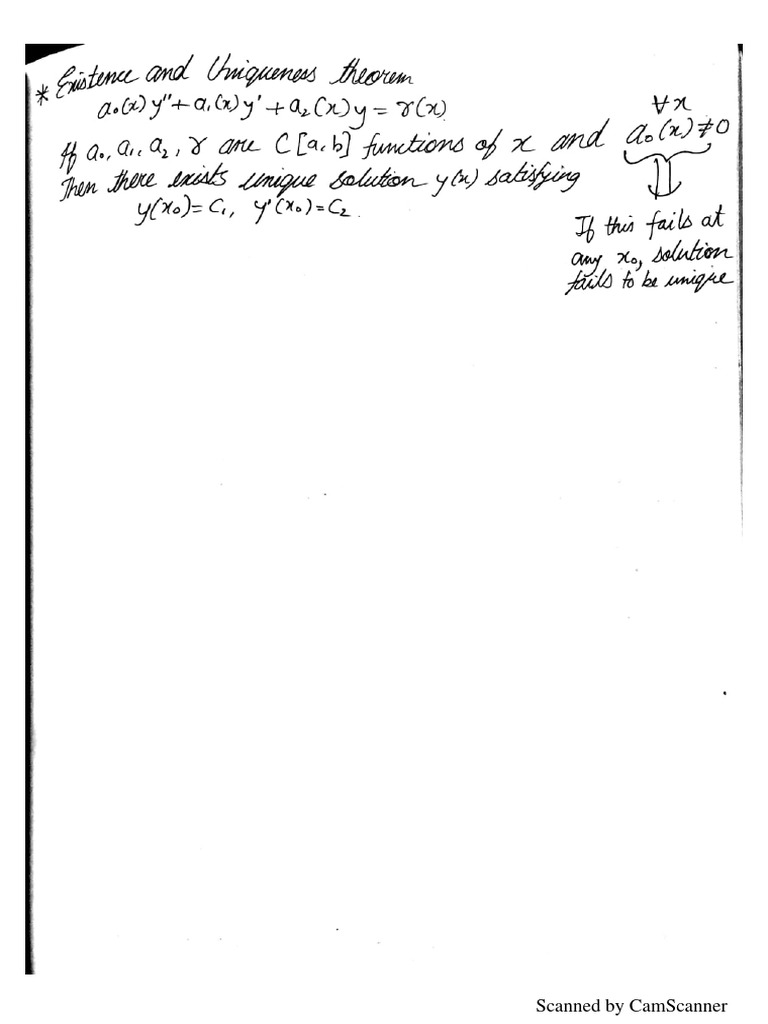 * Existence and Uniqueness theorem
a₀(x)y'' + a₁(x)y' + a₂(x)y = r(x)
If a₀, a₁, a₂, r are C[a,b] functions of x and a₀(x) ≠ 0 ∀x
Then there exists unique solution y(x) satisfying
y(x₀) = C₁, y'(x₀) = C₂.
⇓
If this fails at
any x₀, solution
fails to be unique
Scanned by CamScanner